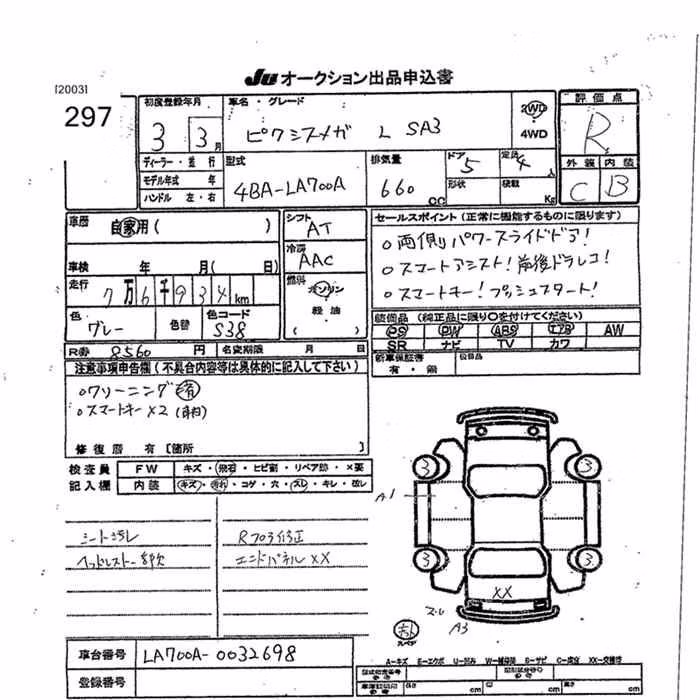 [2003]
JU オークション出品申込書
297
初度登録年月
3 3月
車名・グレード
ピクシスメガ L SA3
2WD
4WD
評価点
R
外装 内装
C B
ディーラー・並行
モデル年式 年
ハンドル 左・右
型式
4BA-LA700A
排気量
660 cc
ドア 5
形状
定員 4 人
積載 Kg
車歴
自家用 ( )
車検 年 月( 日)
走行
7万6千934km
色
グレー
色替
色コード
S38
シフト
AT
冷房
AAC
燃料
ガソリン
軽油
( )
セールスポイント(正常に機能するものに限ります)
○両側パワースライドドア!
○スマートアシスト!前後ドラレコ!
○スマートキー!プッシュスタート!
装備品(純正品に限り○を付けてください)
PS PW ABS エアB AW
SR ナビ TV カワ
新車保証書
有・無
R券 8560 円 名変期限 月 日
注意事項申告欄(不具合内容等は具体的に記入して下さい)
○クリーニング済
○スマートキー×2
修復歴 有[箇所
検査員
記入欄
FW キズ・飛石・ヒビ割・リペア跡・×要
内装 キズ・汚れ・コゲ・穴・スレ・キレ・
シート汚レ
ヘッドレスト一部欠
Rフロア修正
エンドパネルXX
3
3
A1
3
3
XX
スレ
A3
スペア
車台番号 LA700A-0032698
登録番号
A-キズ E-エクボ U-凹み W-補修跡 S-サビ C-腐蝕 XX-交換済
cm cm cm